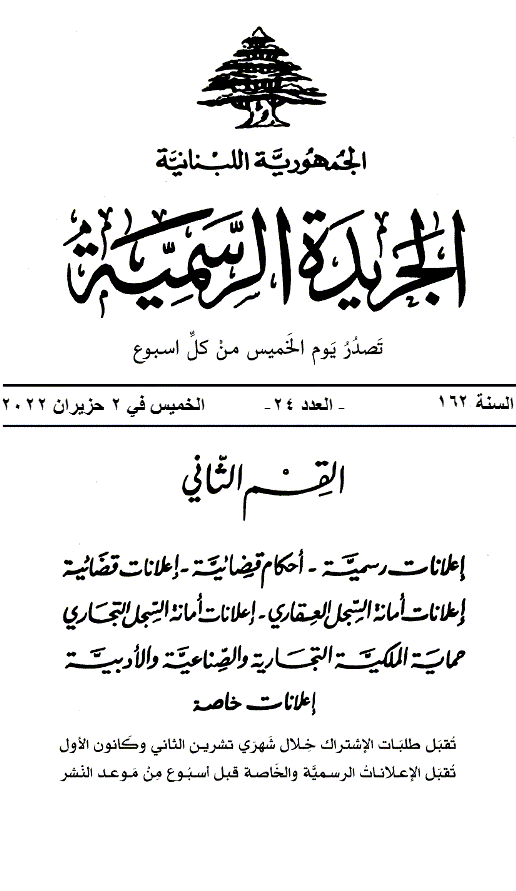 الجُمهُوريَّة اللبْنانيَّة
الجَريدَة الرَّسمِيَّة
تَصدُرُ يَوم الخَميس منْ كلِّ اسبوع
السنة ١٦٢
- العدد ٢٤ -
الخميس في ٢ حزيران ٢٠٢٢
القِسْم الثَّاني
إعلانات رسميَّة - أحكام قضائيَّة - إعلانات قضائية
إعلانات أمانة السِّجل العقاري - إعلانات أمانة السِّجل التجاري
حماية الملكيَّة التجارية والصِّناعيَّة والأدبيَّة
إعلانات خاصة
تُقبَل طلبَات الإشتراك خِلال شَهرَي تشرين الثاني وكَانون الأول
تُقبَل الإعلاناتُ الرسميَّة والخَاصة قبل أسبُوع مِنْ مَوعد النَشر